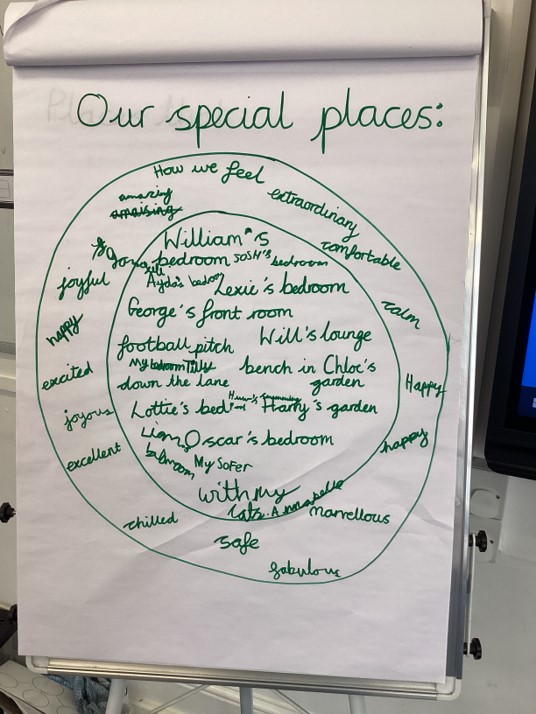 Our special places:
How we feel
amazing
amaising
extraordinary
comfortable
William's
bedroom
JoSH's bedroom
Ayda's
Lexie's bedroom
joyful
calm
George's front room
happy
football pitch
Will's lounge
My bedroom Tilly
bench in Chloe's
garden
down the lane
excited
Happy
Lottie's bed
Harry's garden
joyous
Oscar's bedroom
happy
My SoFer
excellent
with my
cats. Annabelle
marvellous
chilled
safe
fabulous